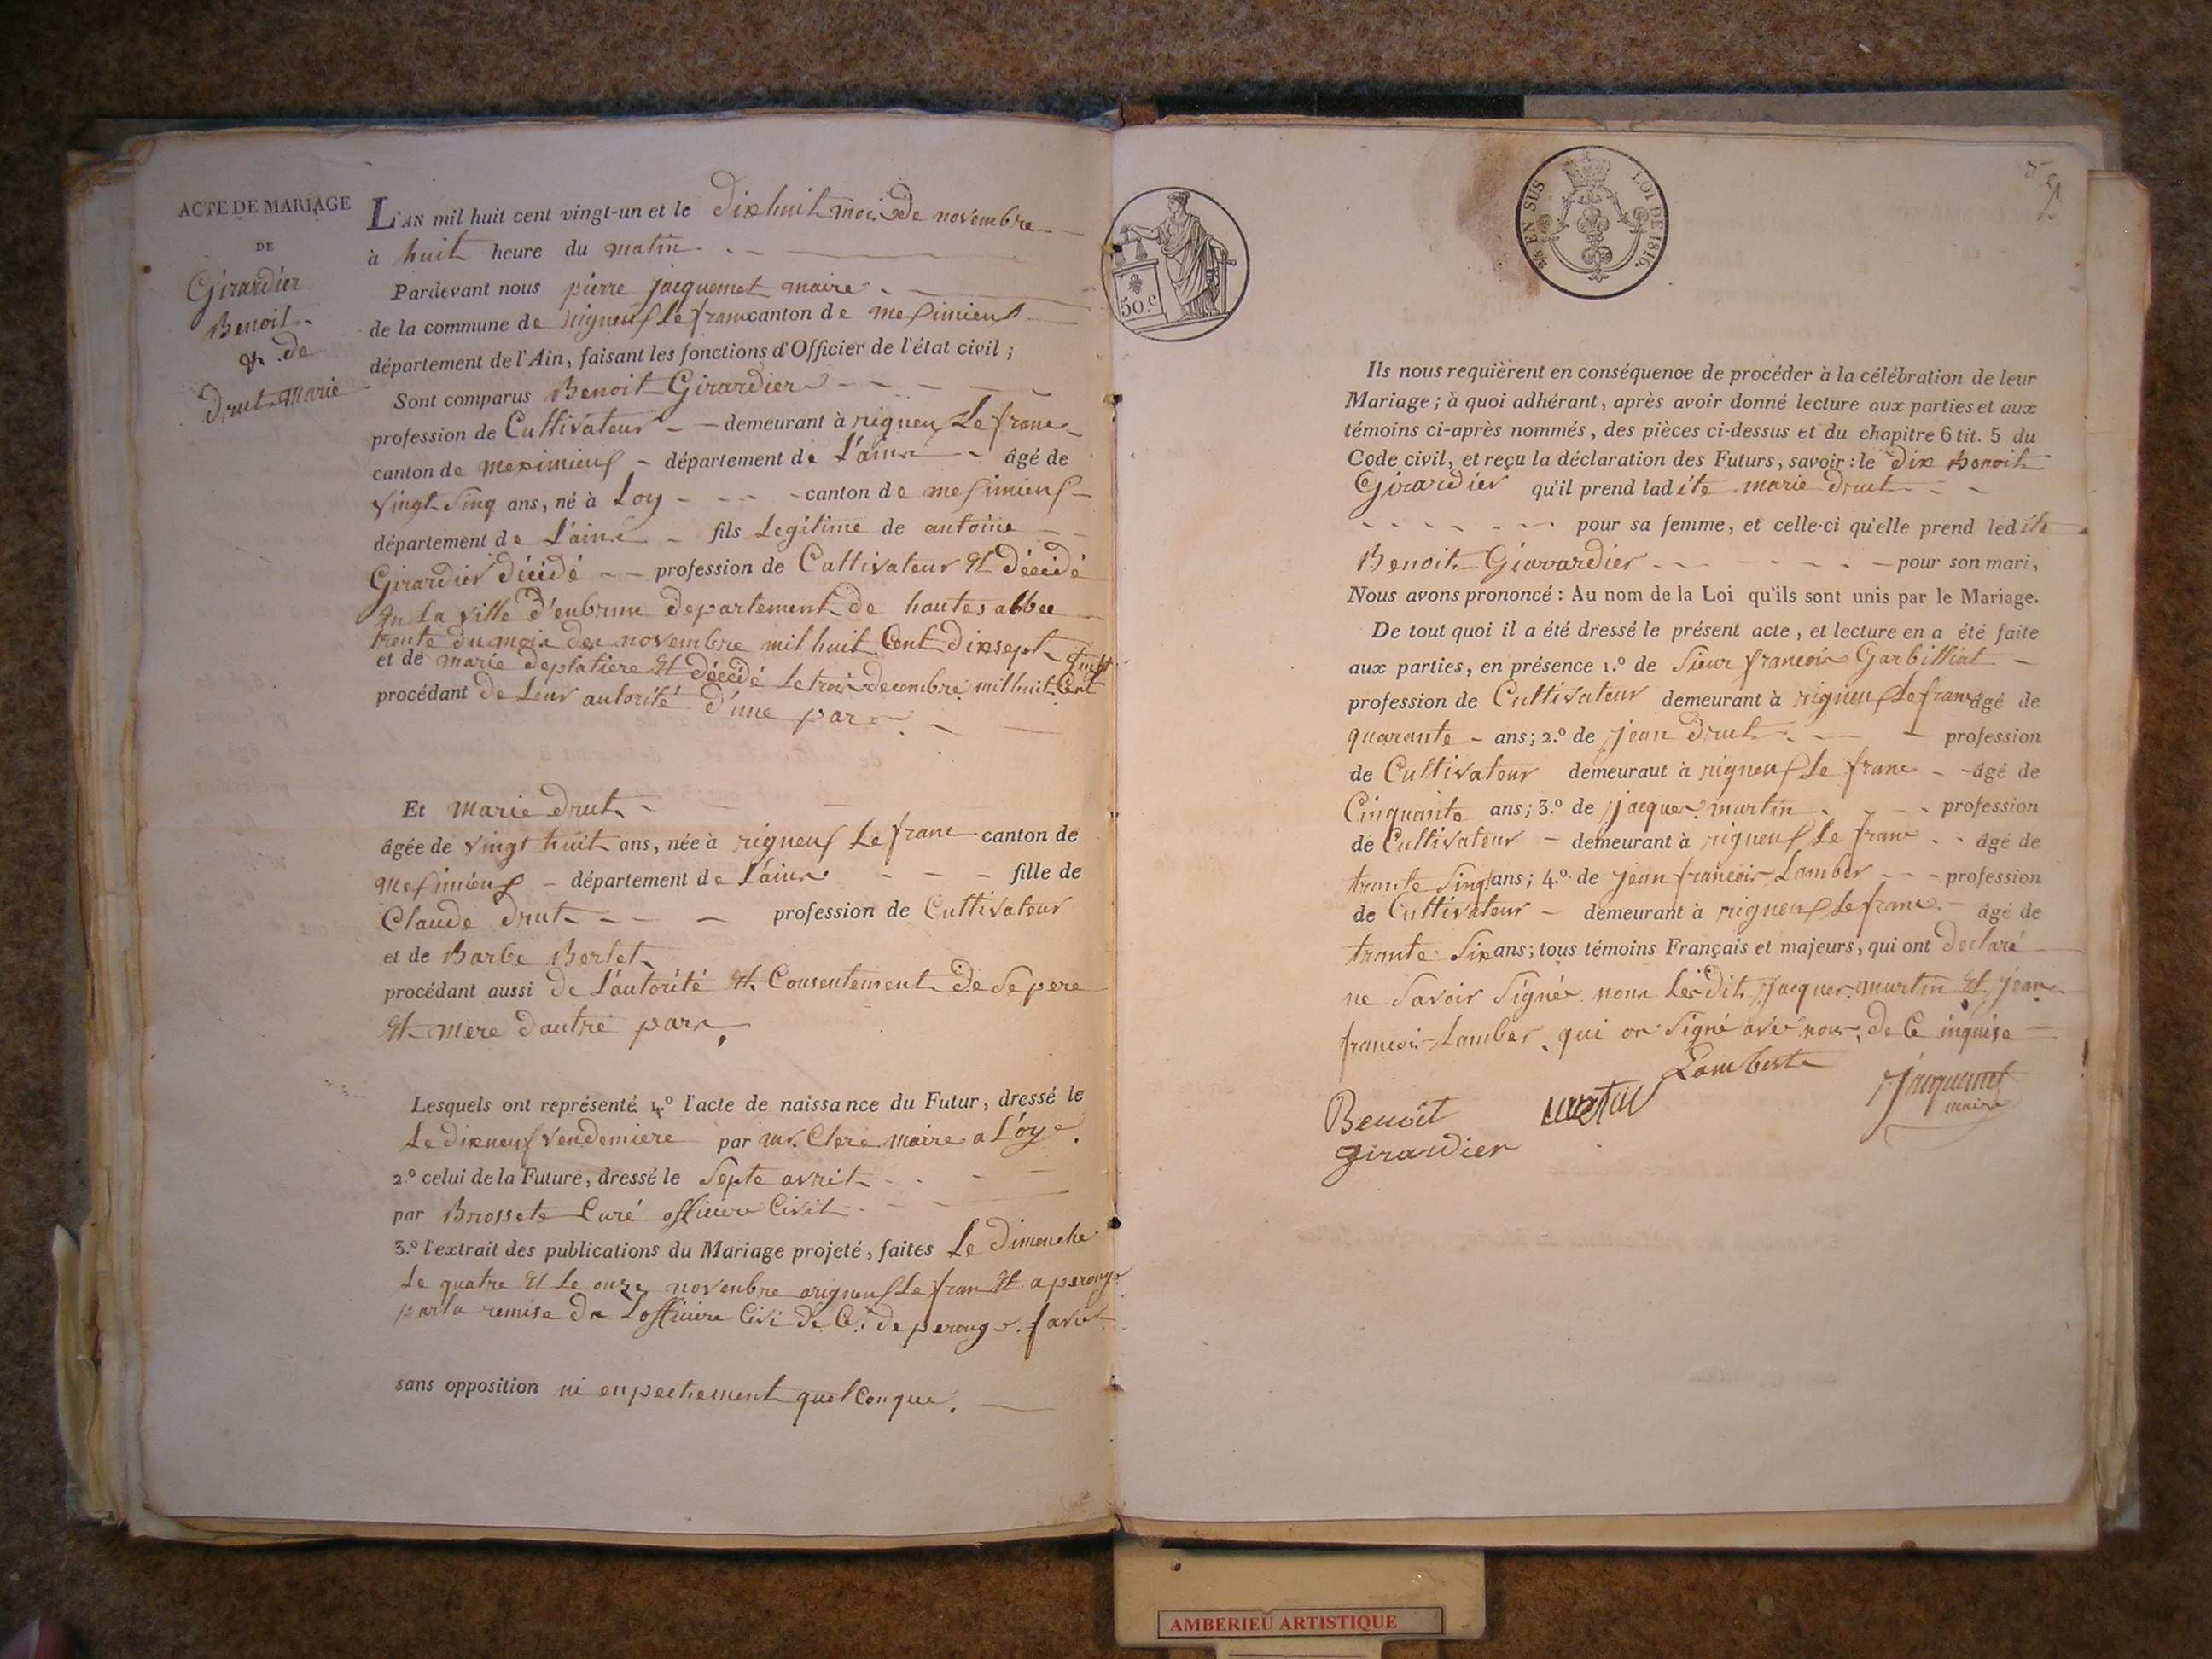 ACTE DE MARIAGE
DE
Girardier
Benoit
& de
Drut Marie
L'AN mil huit cent vingt-un et le dixhuit mois de novembre
à huit heure du matin
Pardevant nous pierre jacquemet maire
de la commune de rigneuf le franc canton de meximieux
département de l'Ain, faisant les fonctions d'Officier de l'état civil ;
Sont comparus Benoit Girardier
profession de Cultivateur demeurant à rigneux Le franc
canton de meximieux département de L'ain âgé de
vingt Sinq ans, né à Loy canton de meximieux
département de L'ain fils Legitime de antoine
Girardier décidé profession de Cultivateur Et décidé
En La ville d'enbrun departement de hautes
trente du mois de novembre mil huit Cent dixsept
et de marie deplatiere Et décédé Le trois decembre mil huit Cent
procédant de Leur autorité d'une part
Et marie drut
âgée de vingt huit ans, née à rigneuf Le franc canton de
meximieux département de L'ain fille de
Claude drut profession de Cultivateur
et de Barbe Berlet
procédant aussi de L'autorité Et Consentement de Se pere
Et mere d'autre part
Lesquels ont représenté 1.º l'acte de naissance du Futur, dressé le
Le dixneuf vendemiere par mr. Clere maire a L'oye.
2.º celui de la Future, dressé le Septe avril
par Brossete Curé officiere Civil
3.º l'extrait des publications du Mariage projeté, faites Le dimenche
Le quatre Et Le onze novenbre a rigneuf Le fran Et a perouge
par la remise de L'officiere Civi de perouge. favot
sans opposition ni enpechement quelconque.
50.c
EN SUS LOI DE 1816.
Ils nous requièrent en conséquence de procéder à la célébration de leur
Mariage ; à quoi adhérant, après avoir donné lecture aux parties et aux
témoins ci-après nommés, des pièces ci-dessus et du chapitre 6 tit. 5 du
Code civil, et reçu la déclaration des Futurs, savoir : le dix Benoit
Girardier qu'il prend ladite marie drut
pour sa femme, et celle-ci qu'elle prend ledite
Benoit Giavardier pour son mari,
Nous avons prononcé : Au nom de la Loi qu'ils sont unis par le Mariage.
De tout quoi il a été dressé le présent acte, et lecture en a été faite
aux parties, en présence 1.º de Sieur francois Garbilliat
profession de Cultivateur demeurant à rigneuf Le franc âgé de
quarante ans ; 2.º de jean drut profession
de Cultivateur demeuraut à rigneuf Le franc âgé de
Cinquante ans ; 3.º de jacques martin profession
de Cultivateur demeurant à rigneuf Le franc âgé de
trante Sinq ans ; 4.º de jean francois Lamber profession
de Cultivateur demeurant à rigneuf Le franc âgé de
trante Six ans ; tous témoins Français et majeurs, qui ont declaré
ne Savoir Signée non Lesdit jacques martin Et jean
francois Lamber qui on Signé avec nous de Ce inquise
Lamberte
Jacquemet
maire
Benoît
martin
girardier
AMBERIEU ARTISTIQUE